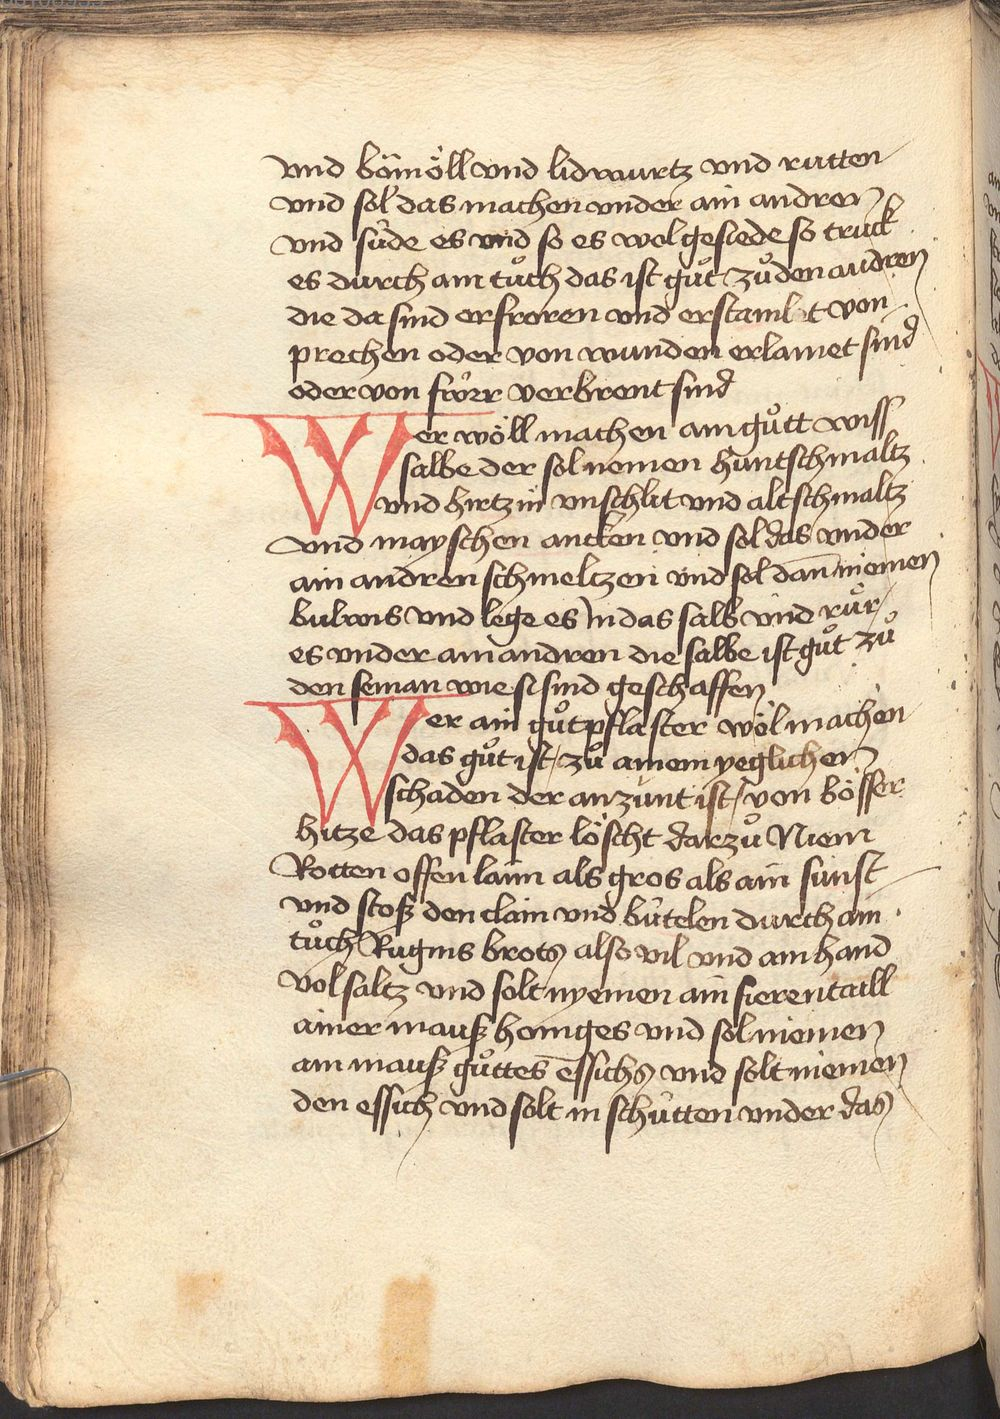 vnd bömöll vnd lidwurtz vnd rutten
vnd sol das machen vnder ain andren
vnd süde es vnd so es wol gesiede so truck
es durch ain tůch das ist gůt zůden andren
die da sind erfroren vnd erstamlet von
prechen oder von wunden erlamet sind
oder von frörr verbrent sind
Wer wöll machen ain gůtt wiss
salbe der sol nemen hüntschmaltz
vnd hirtzin vnschlit vnd altschmaltz
vnd mayschen ancken vnd sol das vnder
ain andren schmeltzen vnd sol dan̄ niemen
vnd lege es in das salb vnd růr
es vnder ain andren die salbe ist gůt zů
den seman wie si sind geschaffen
Wer ain gůt pflaster wöl machen
das gůt ist zů ainem yeglichen
schaden der anzünt ist von bösser
hitze das pflaster löscht darzů Niem
Rotten offen laim als gros als ain funst
vnd stosz den claim vnd bütelen durch ain
tůch Rugins brots also vil vnd ain hand
vol saltz vnd solt nyemen ain fierentaill
ainer mausz honiges vnd sol niemen
ain mausz gůttes essichs vnd solt niemen
den essich vnd solt in schütten vnder das